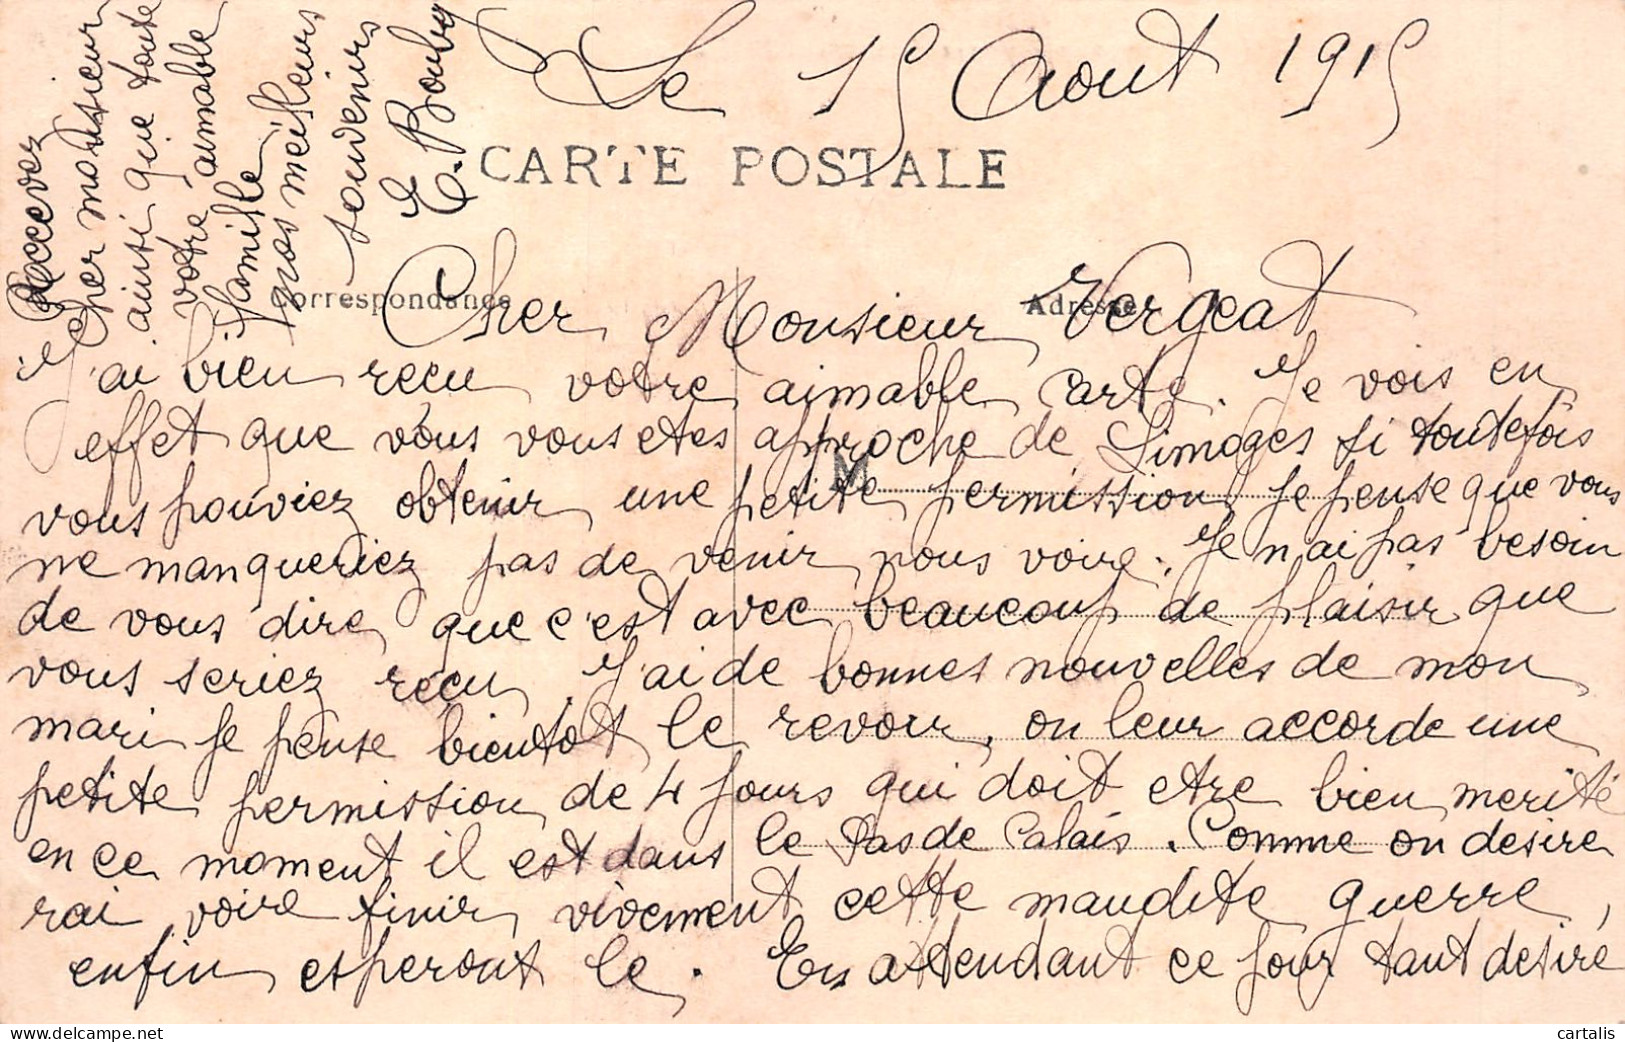 Le 15 Aout 1915
CARTE POSTALE
Correspondance
Adresse
Cher Monsieur Vergeat
J'ai bien recu votre aimable carte. Je vois en
effet que vous vous etes approche de Limoges si toutefois
vous pouviez obtenir une petite permission je pense que vous
ne manqueriez pas de venir nous voire. Je n'ai pas besoin
de vous dire que c'est avec beaucoup de plaisir que
vous seriez recu. J'ai de bonnes nouvelles de mon
mari je pense bientot le revoir, on leur accorde une
petite permission de 4 jours qui doit etre bien merité
en ce moment il est dans le Pas de Calais. Comme on desire
rai voire finir vivement cette maudite guerre,
enfin esperont le. En attendant ce jour tant desiré
Recevez
cher monsieur
ainsi que toute
votre aimable
famille
mes meilleurs
souvenirs
E. Bouby
M
cartalis